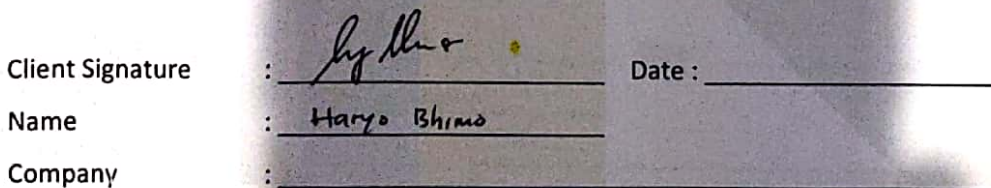 Client Signature : Date :
Name : Haryo Bhimo
Company :